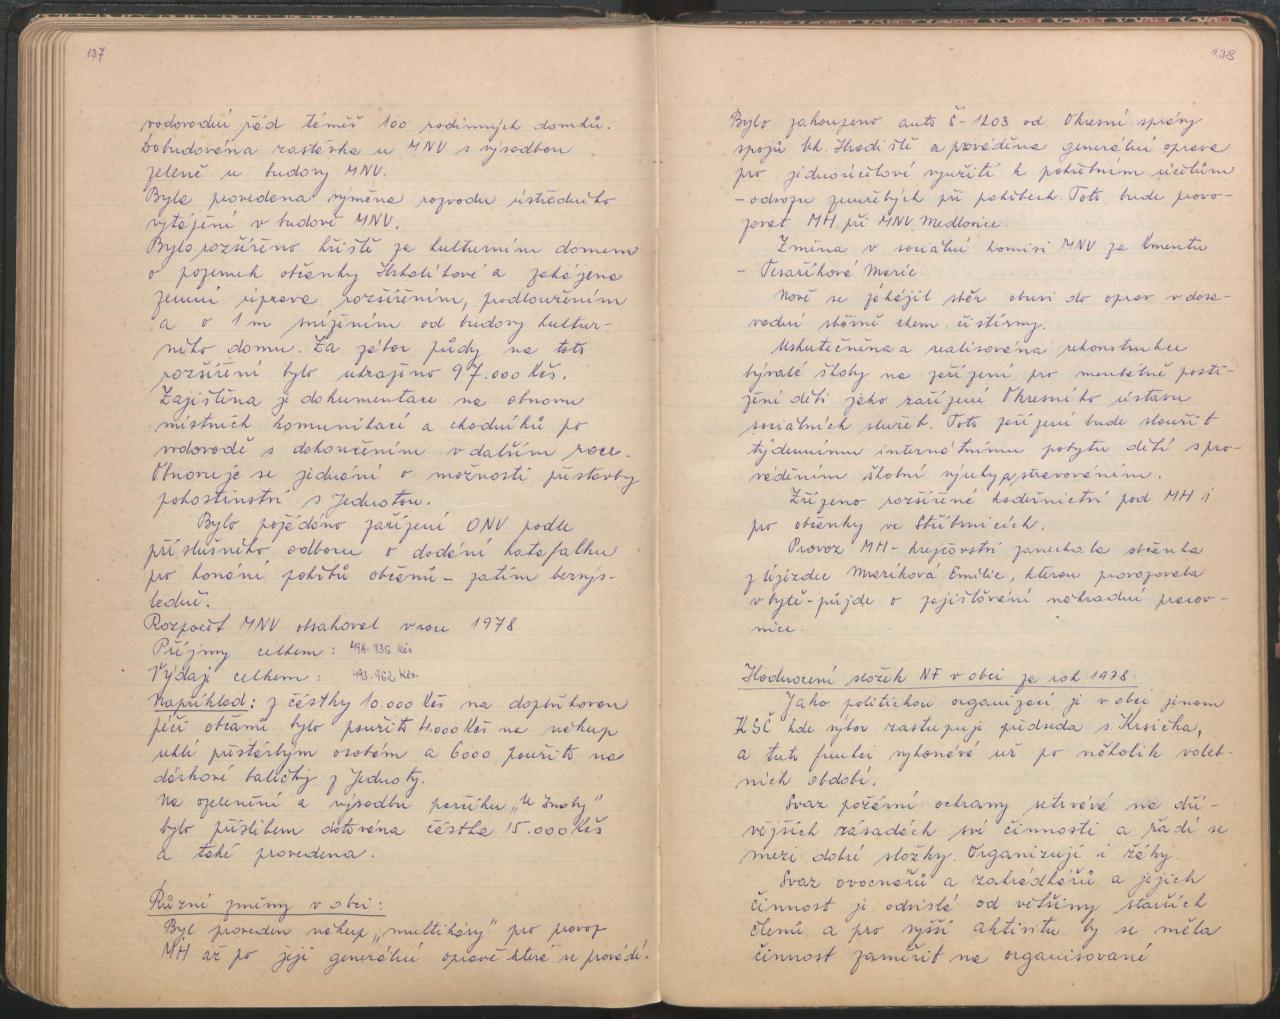 137
vodovodní řád téměř 100 rodinných domků.
Dobudována zastávka u MNV s výsadbou
zeleně u budovy MNV.
Byla provedena výměna rozvodu ústředního
vytápění v budově MNV.
Bylo rozšířeno hřiště za kulturním domem
o pozemek občanky Hrbalíkové a zahájena
zemní úprava rozšířením, prodloužením
a o 1 m snížením od budovy kultur-
ního domu. Za zábor půdy na toto
rozšíření bylo uhrazeno 97.000 Kčs.
Zajištěna je dokumentace na obnovu
místních komunikací a chodníků po
vodovodě s dokončením v dalším roce.
Obnovuje se jednání o možnosti přístavby
pohostinství s Jednotou.
Bylo požádáno zařízení ONV podle
příslušného odboru o dodání katafalku
pro konání pohřbů občanů - zatím bezvýs-
ledně.
Rozpočet MNV obsahoval v roce 1978
Příjmy celkem: 498.736 Kčs
Výdaje celkem: 493.962 Kčs.
Například: z částky 10.000 Kčs na doplňkovou
péči občanů bylo použito 4.000 Kčs na nákup
uhlí přestárlým osobám a 6000 použito na
dárkové balíčky z Jednoty.
Na ozelenění a výsadbu parčíku „U Snohy"
bylo příslibem dotována částka 15.000 Kčs
a také provedena.
Různé změny v obci:
Byl proveden nákup „multikáry" pro provoz
MH až po její generální opravě které se provádí.
138
Bylo zakoupeno auto Š-1203 od Okresní správy
spojů Uh. Hradiště a prováděna generální oprava
pro jednoúčelové využití k pohřebním účelům
- odvozu zemřelých při pohřbech. Toto bude provo-
zovat MH při MNV Medlovice.
Změna v sociální komisi MNV za Omentu
- Tesaříková Marie.
Nově se zahájil sběr obuvi do oprav v dosa-
vadní sběrně chem. čistírny.
Uskutečněna a realisována rekonstrukce
bývalé školy na zařízení pro mentálně posti-
žené děti jako zařízení Okresního ústavu
sociálních služeb. Toto zařízení bude sloužit
týdennímu internátnímu pobytu dětí s pro-
váděním školní výuky, a stravováním.
Zřízeno rozšířené kadeřnictví pod MH i
pro občanky ve Stříbrnicích.
Provoz MH - krejčovství zanechala občanka
z Újezdce Mazíková Emilie, kterou provozovala
v bytě - půjde o zajišťování náhradní pracov-
nice.
Hodnocení složek NF v obci za rok 1978.
Jako politickou organizací je v obci jenom
KSČ kde výbor zastupuje předseda s. Krsička,
a tuto funkci vykonává už po několik voleb-
ních období.
Svaz požární ochrany setrvává na dří-
vějších zásadách své činnosti a řadí se
mezi dobré složky. Organizují i žáky.
Svaz ovocnářů a zahrádkářů a jejich
činnost je odvislá od většiny starších
členů a pro vyšší aktivitu by se měla
činnost zaměřit na organisované